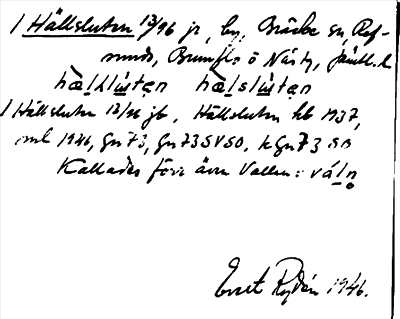 1 Hällsluten 12/96 jr, by, Bräcke sn, Refsunds, Brunflo o Näs tg, Jämtl. l
hæ̀l̥slu̇tən hæ̀lslu̇tən
1 Hällsluten 12/96 jb, Hällsluten kb 1937,
ml 1946, Gn73, Gn73SVSO, kGn73
Kallades förr även Vallen: váln̥
Ernst Rydén 1946.